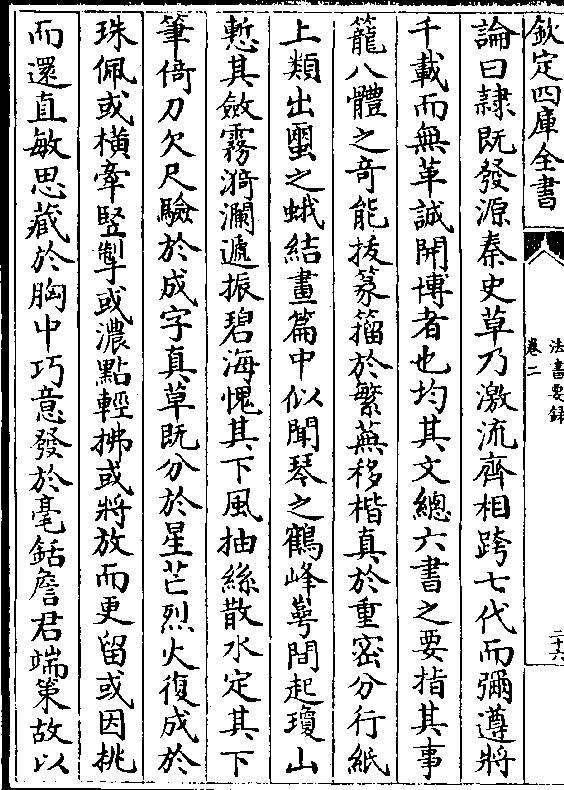 欽定四庫全書
法書要録
卷二
二十六
論曰隸既發源秦史草乃激流齊相跨七代而彌遵將
千載而無革誠開博者也均其文總六書之要指其事
籠八體之奇能拔篆籀於繁蕪移楷真於重密分行紙
上類出璽之蛾結畫篇中似聞琴之鶴峰崿間起瓊山
慙其斂霧漪瀾遞振碧海愧其下風抽絲散水定其下
筆倚刀欠尺驗於成字真草既分於星芒烈火復成於
珠佩或横牽竪掣或濃點輕拂或將放而更留或因挑
而還直敏思藏於胸中巧意發於毫銛詹君端策故以